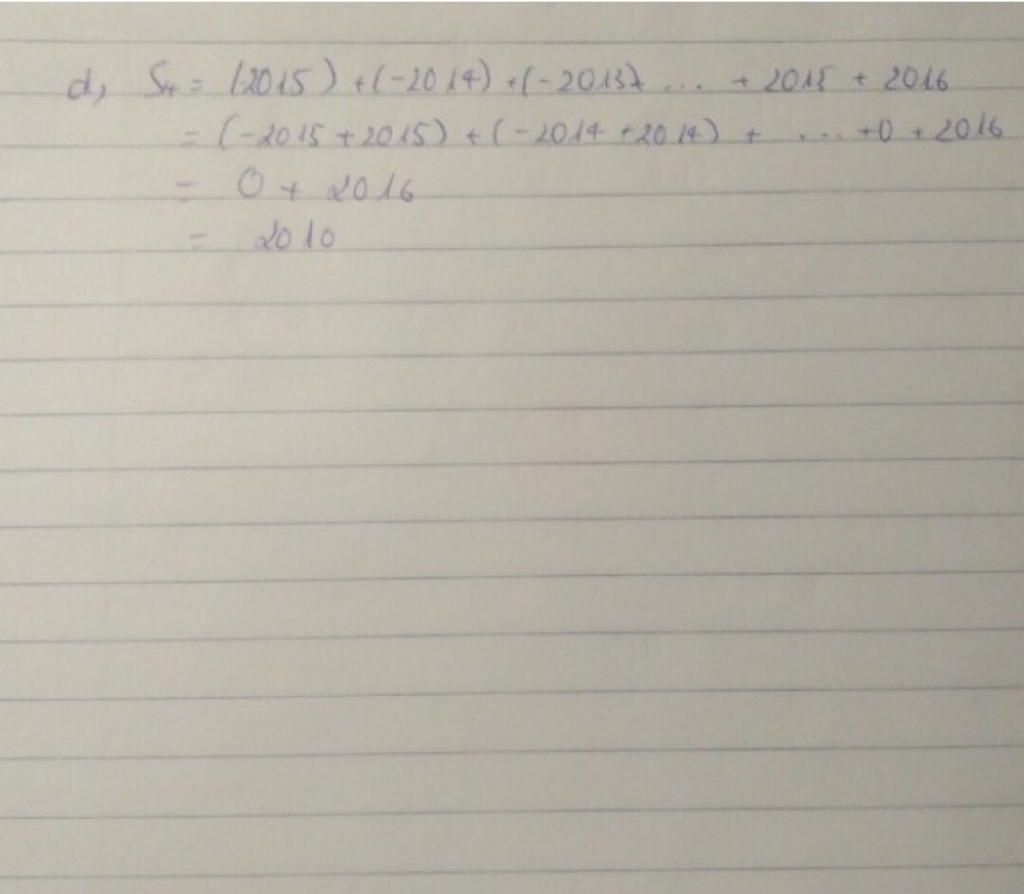 d, S4 = (-2015) + (-2014) + (-2013) + ... + 2015 + 2016
= (-2015 + 2015) + (-2014 + 2014) + ... + 0 + 2016
= 0 + 2016
= 2010